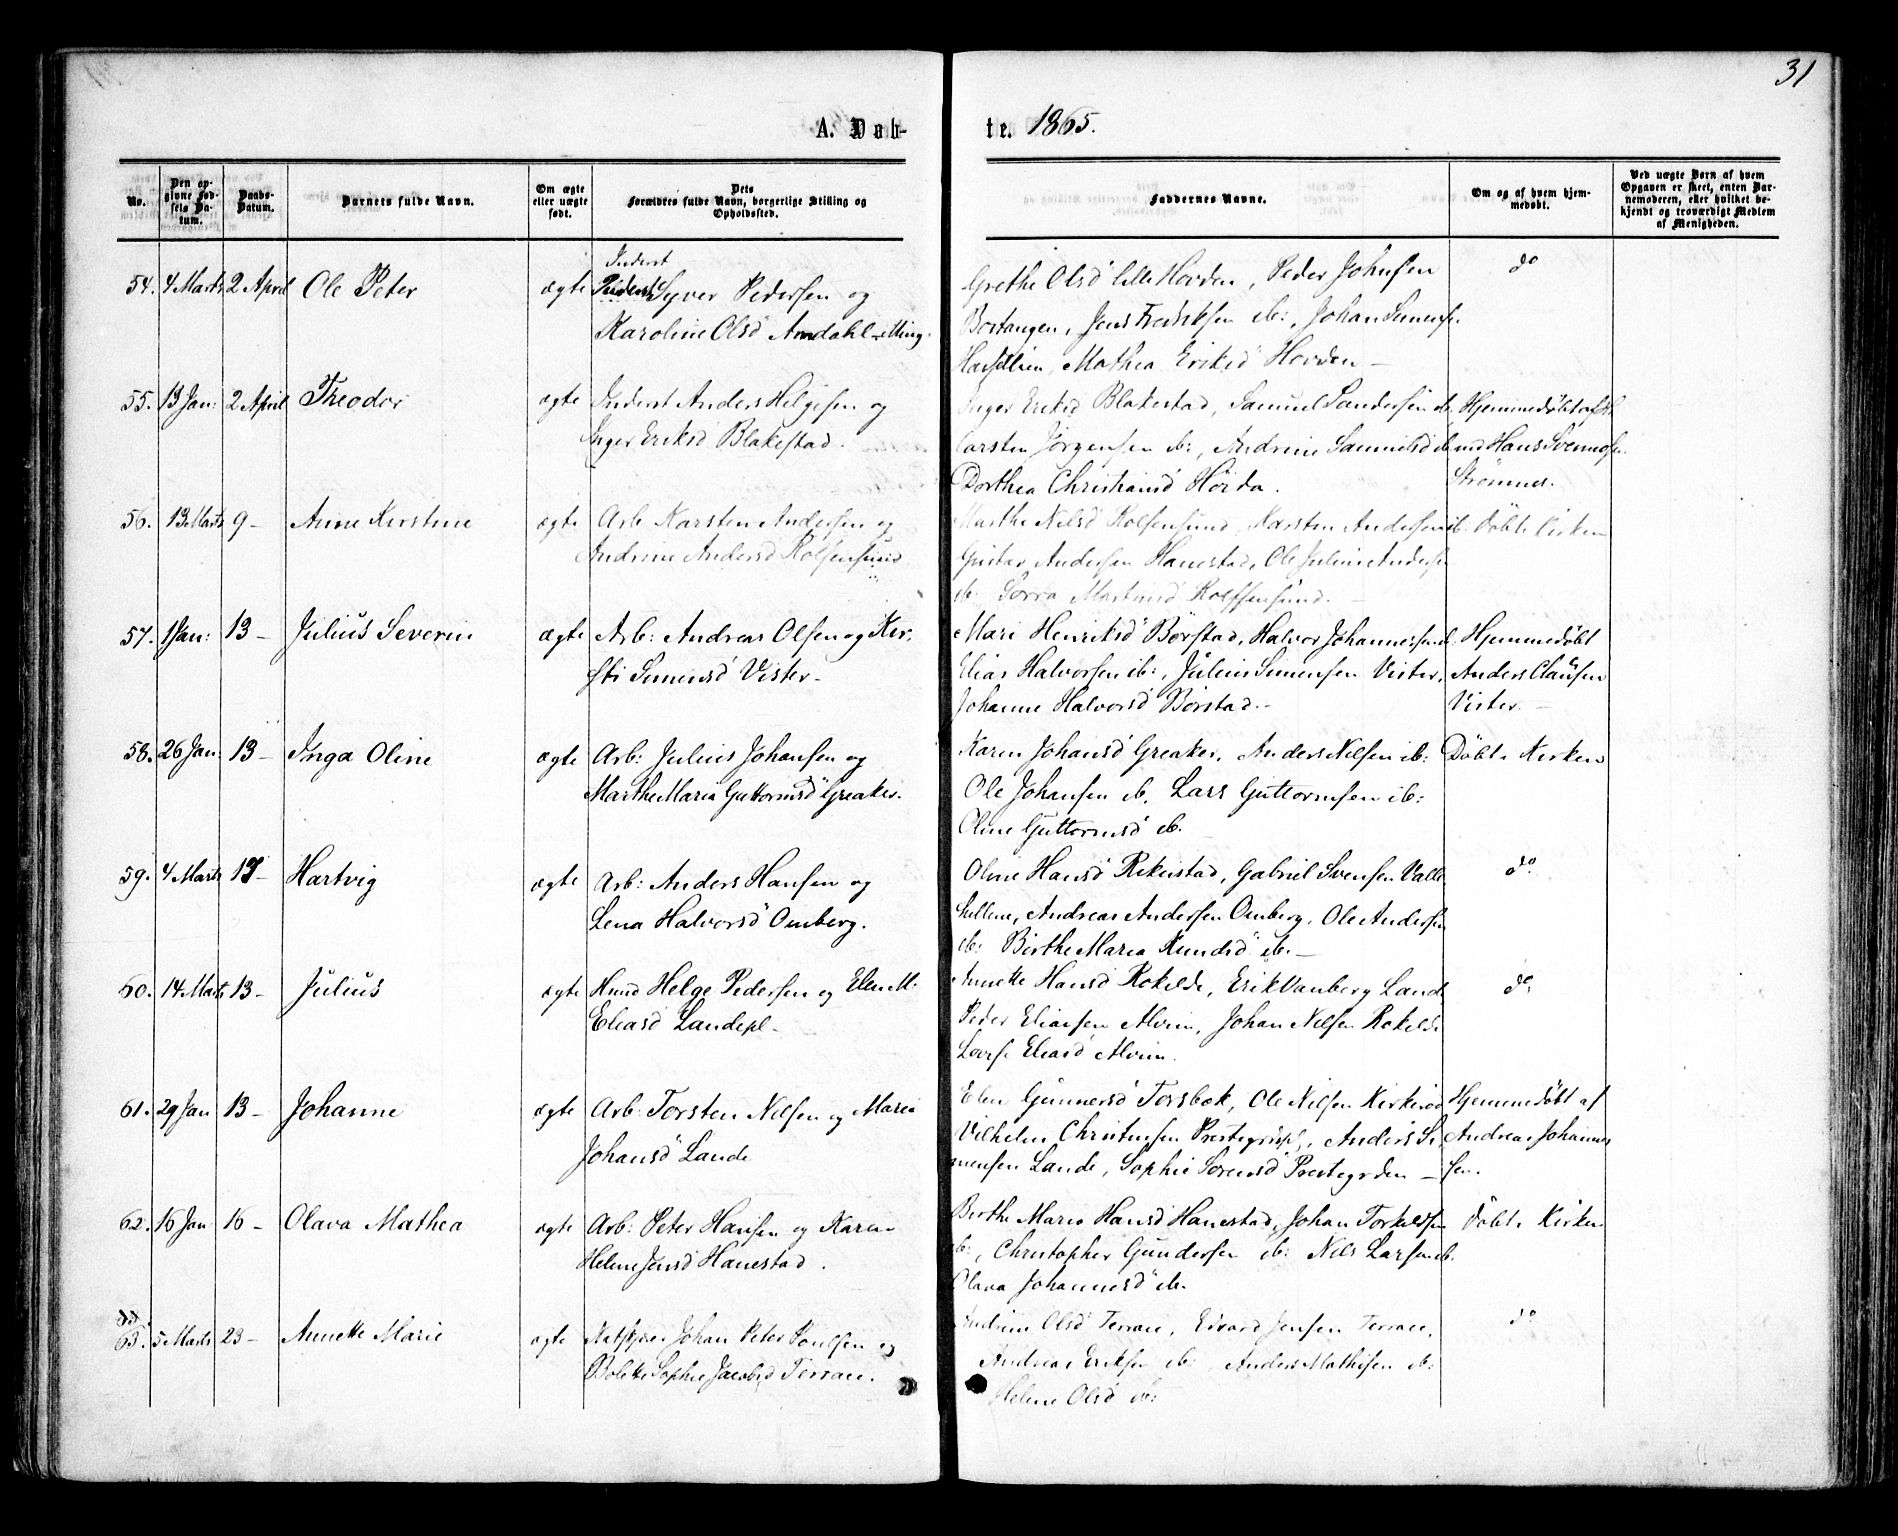 31
A. Døb-
te. 1865.
No.
Den op-
givne Fød-
sels Da-
tum.
Daabs-
Datum.
Barnets fulde Navn.
Om ægte
eller uægte
født.
Dets
Forældres fulde Navn, borgerlige Stilling og
Opholdssted.
Faddernes Navne.
Om og af hvem hjem-
medøbt.
Ved uægte Børn af hvem
Opgaven er skeet, enten Bar-
nemoderen, eller hvilket be-
kjendt og troværdigt Medlem
af Menigheden.
54. 4 Marts 2 April Ole Peter ægte Inderst
Syver Pedersen og
Karoline Olsd
Grethe Olsd lille Hovden, Peder Johnsen do
Bortangen, Jens Fredriksen ib:, Johan Simensen
Mathea Eriksd Hovden –
55. 13 Jan: 2 April Theodor ægte Inderst Anders Helgesen og
Inger Eriksd Blakestad.
Inger Eriksd Blakestad, Samuel Sandersen ib. Hjemmedøbt af
Carsten Jørgensen ib:, Andrine Samuelsd ib Hans Svendsen
Dorthea Christiansd Hørda. Strømnes.
56. 13 Marts 9 – Anne Kirstine ægte Arb Karsten Andersen og
Andrine Andersd Rolfensund
Marthe Nilsd Rolfensund, Karsten Andersen ib. døbt i Kirken
Gustav Andersen Hanestad, Ole Julius Andersen
ib: Martinsd Rolffensund. –
57. 1 Jan: 13 – Julius Severin ægte Arb: Andreas Olsen og Kir-
sti Simensd Vister –
Mari Henriksd Børstad, Halvor Johannessen ib. Hjemmedøbt
Elias Halvorsen ib:, Julius Simensen Vister, Anders Clausen
Johanne Halvorsd Børstad. – Vister. –
58. 26 Jan: 13 – Inga Oline ægte Arb: Julius Johansen og
Marthe Maria Guttormsd Greaker.
Karen Johansd Greaker, Anders Nilsen ib: Døbt i Kirken
Ole Johansen ib, Lars Guttormsen ib:
Oline Guttormsd ib.
59. 4 Marts 13 – Hartvig ægte Arb: Anders Hansen og
Lena Halvorsd Omberg.
Oline Hansd Rekustad, Gabriel Svensen Valle do
Andreas Andersen Omberg, Ole Andersen
ib: Birthe Maria Knudsd ib. –
60. 14 Marts 13 – Julius ægte Helge Pedersen og Elen M.
Eliasd Landepl –
Annette Hansd Rokilde, Erik Vanberg Lande do
Peder Eliassen Alvim, Johan Nilsen Rokilde
Lovise Eliasd Alvim.
61. 29 Jan 13 – Johanne ægte Arb: Torsten Nilsen og Maria
Johansd Lande
Elen Gunnersd Torsbæk, Ole Nilsen Kirkerød Hjemmedøbt af
Vilhelm Christensen Prestegrdspl, Anders Si- Andreas Johannes-
mensen Lande, Sophie Sorensd Prestegrden – sen.
62. 16 Jan 16 – Olava Mathea ægte Arb: Peter Hansen og Karen
Helene Jensd Hanestad.
Birthe Maria Hansd Hanestad, Johan Torkildsen Døbt i Kirken
ib:, Christopher Gundersen ib: Nils Larsen ib.
Olava Johannesd ib.
63. 5 Marts 23 – Annette Marie ægte Johan Peter Poulsen og
Bolette Sophie Jacobsd Terrace.
Andrine Olsd Terrace, Edvard Jensen Terrace, do
Andreas Eriksen ib:, Anders Mathisen ib:
Helene Olsd ib: